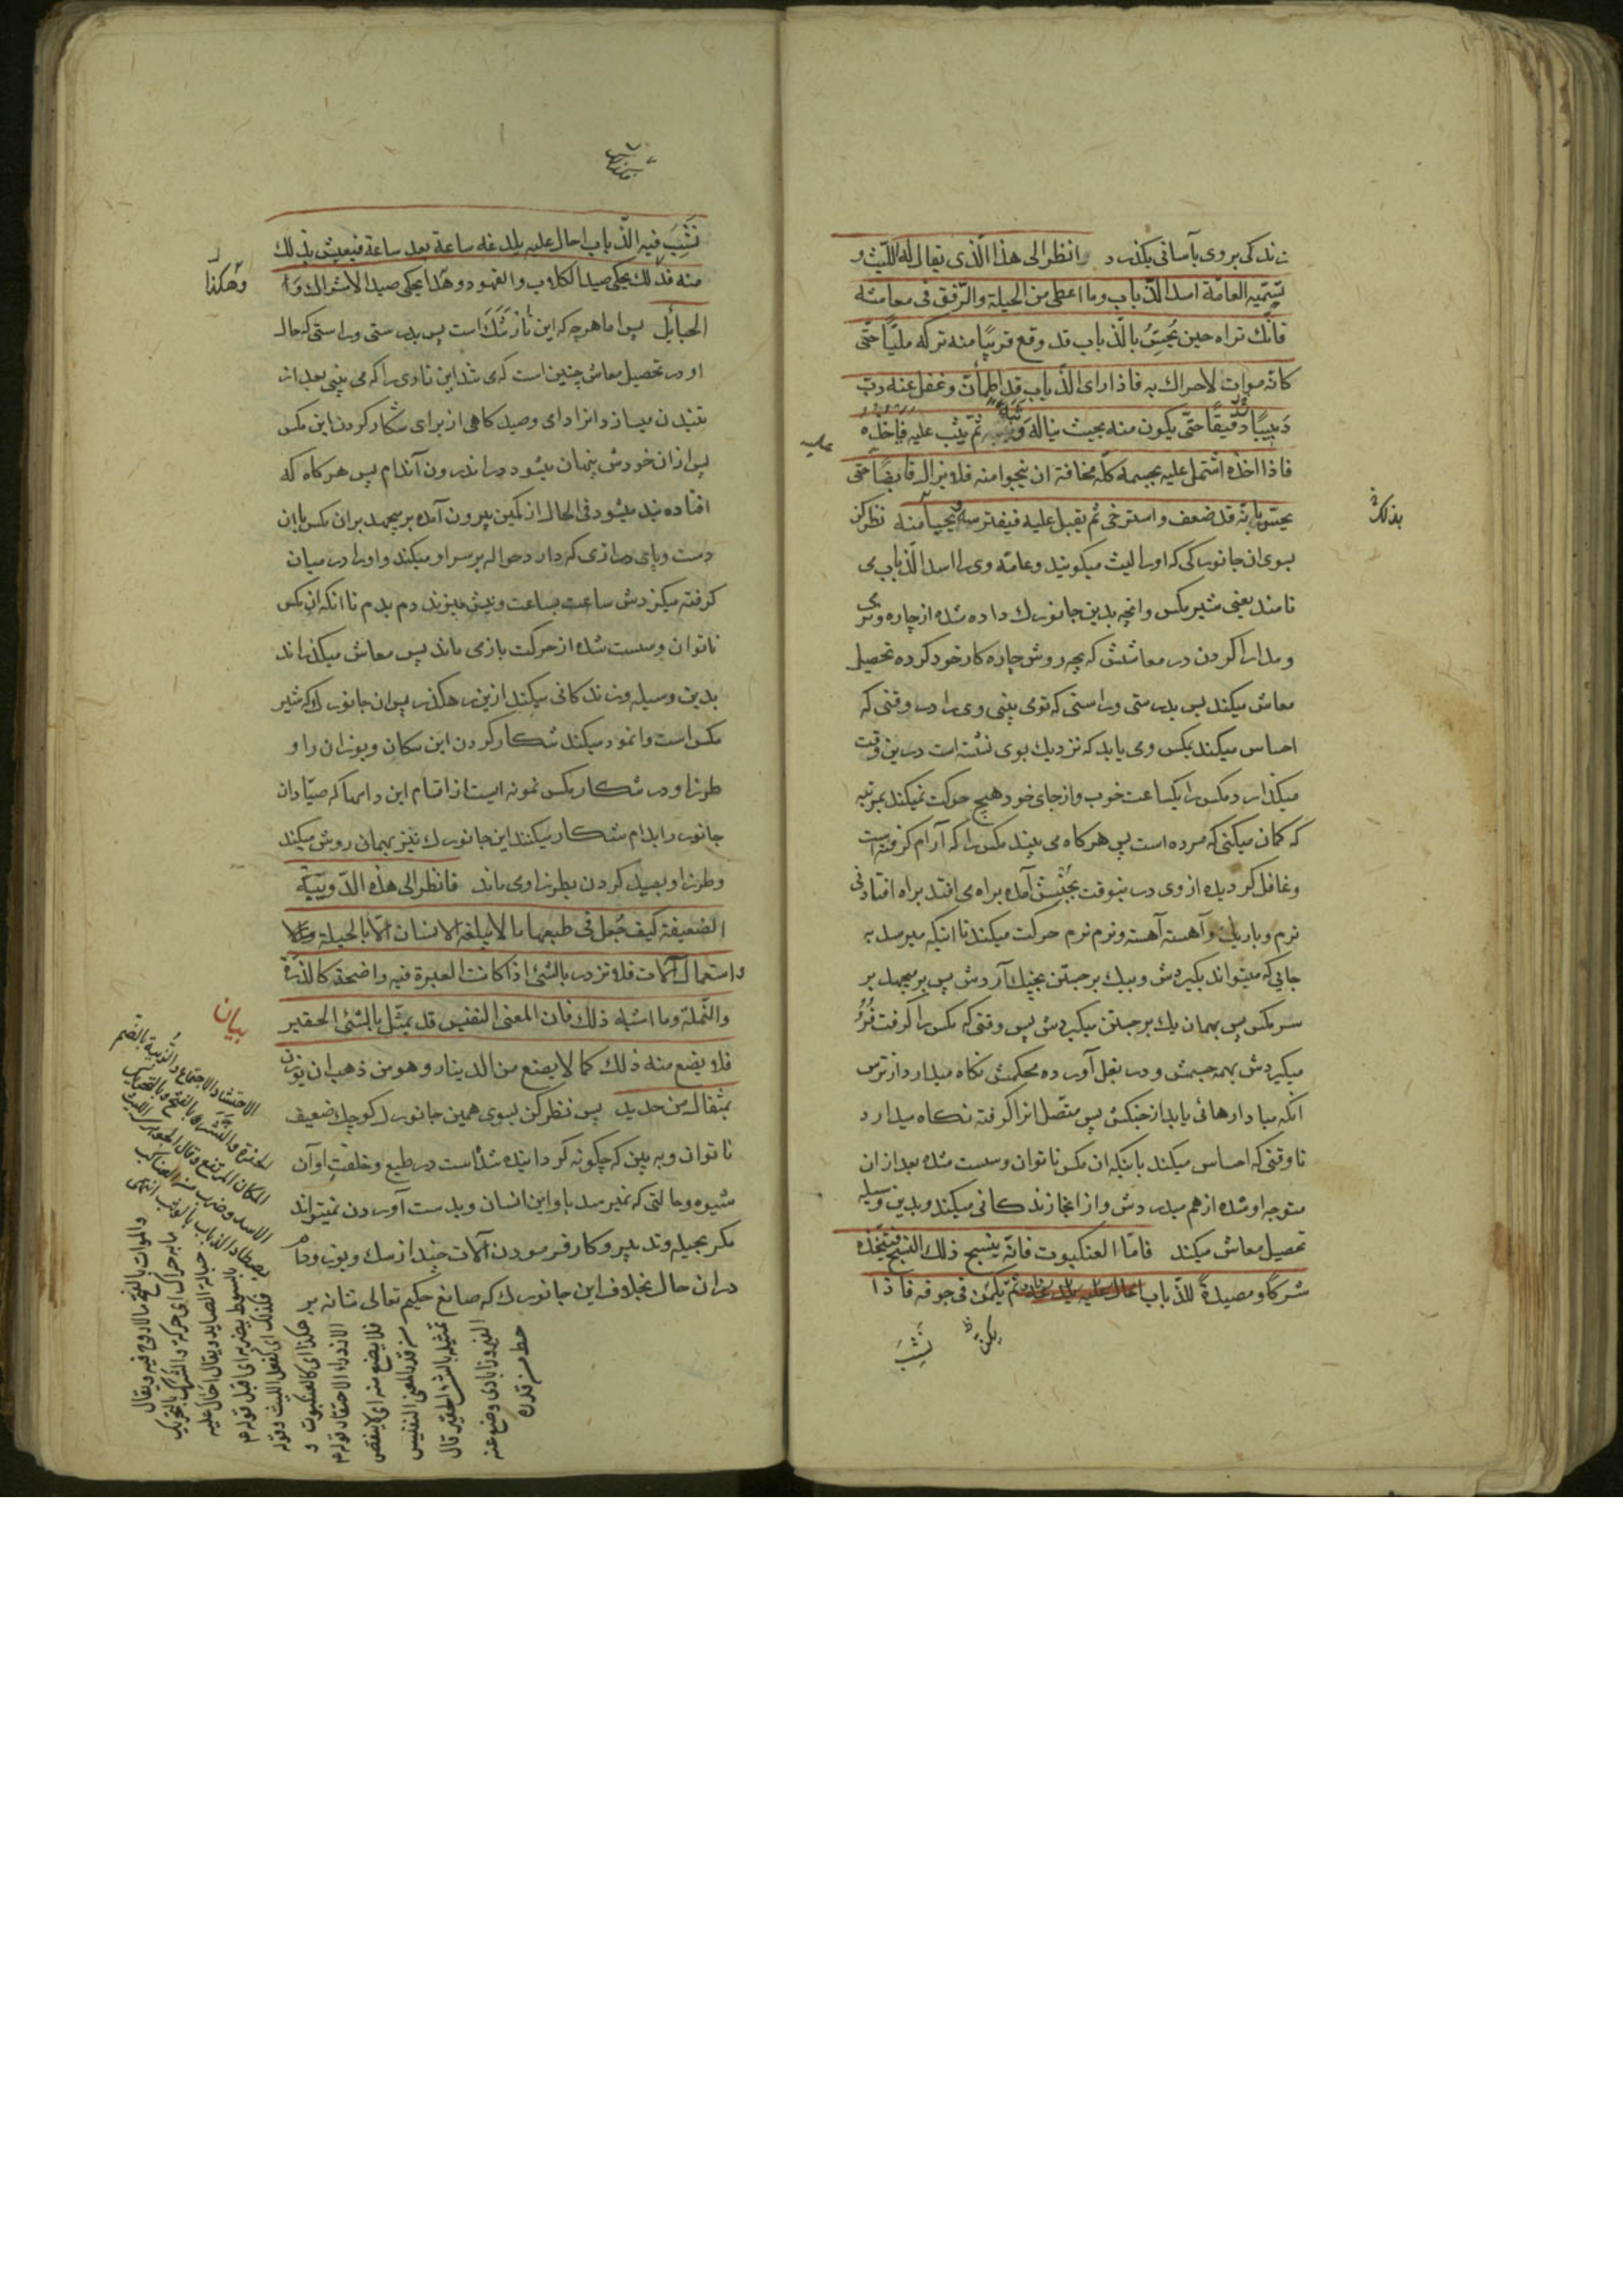 زندکی بروی بآسانی بکذرد انظر الی هذا الّذی یقال له اللّیث و
تسمّیه العامّة اسد الذّباب وما اعطی من الحیلة والرّفق فی معاشه
فانّک تراه حین یُحِسُّ بالذّباب قد وقع قریبًا منه ترکه ملیًّا حتّی
کانّه موات لا حراک به فاذا رای الذّباب قد اطمأنّ وغفل عنه دبّ
دَبیبًا دقیقًا حتّی یکون منه بحیث یناله وَثْبُهُ ثمّ یثب علیه فیأخذه
فاذا اخذه اشتمل علیه بجسمه کلّه مخافة ان ینجوا منه فلا یزال قابضًا حتّی
یحسّ بانّه قد ضعف واسترخی ثم یقبل علیه فیفترسه ویحیی منه نظر کن
بذلک
بسوی ان جانورکی که او را لیث میکویند وعامّه وی را اسد الذّباب می
نامند یعنی شیر مکس وانچه بدین جانورک داده شده از چاره ونرمی
ومدارا کردن در معاشش که بچه روش چاره کار خود کرده تحصیل
معاش میکند پس بدرستی وراستی که تو می بینی وی را در وقتی که
احساس میکند بمکس ومی یابد که نزدیک بوی نشسته است درین وقت
میکذارد مکس را یکساعت خوب واز جای خود هیچ حرکت نمیکند بمرتبه
که کمان میکنی که مرده است پس هرکاه می بیند مکس را که آرام کرفته است
وغافل کردیده از وی درینوقت بجنبش آمده براه می افتد براه افتادنی
نرم وباریک وآهسته آهسته ونرم نرم حرکت میکند تا اینکه میرسد به
جایی که میتواند بکیردش وبیک برجستن بچنک آردش پس برمیجهد بر
سر مکس پس بهمان یک برجستن میکیردش پس وقتی که مکس را کرفت
میکیردش بهمه جسمش ودر بغل آورده محکمش نکاه میدارد از ترس
انکه مبادا رهائی یابد از چنکش پس متّصل انرا کرفته نکاه میدارد
تا وقتی که احساس میکند باینکه ان مکس ناتوان وسست شده بعد از ان
متوجه او شده از هم میدردش واز انجا زندکانی میکند وبدین وسیله
تحصیل معاش میکند فامّا العنکبوت فانّه ینسج ذلک النّسج فیتّخذه
شرکًا ومصیدةً للذّباب ثم یکمن فی جوفه فاذا
نَشِبَ
نَشِبَ فیه الذّباب احال علیه یلدغه ساعة بعد ساعة فیعیش بذلک
منه فذلک یحکی صید الکلاب والفهود وهذا یحکی صید الاشراک وا
وهٰکذا
الحبائل پس اما هرچه که این است پس بدرستی وراستی که حال
او در تحصیل معاش چنین است که می تند این تاری را که می بینی بعد از
تنیدن میسازد انرا دامی وصیدکاهی از برای شکار کردن این مکس
پس از ان خودش پنهان میشود در اندرون آندام پس هرکاه که
افتاده بند میشود فی الحال از کمین بیرون آمده برمیجهد بران مکس با ان
دست وپای درازی که دارد حواله بر سر او میکند واو را در میان
کرفته میکزدش ساعت بساعت ونیش میزند دم بدم تا انکه ان مکس
ناتوان وسست شده از حرکت بازمی ماند پس معاش میکذراند
بدین وسیله وزندکانی میکند ازین رهکذر پس ان جانورک که شیر
مکس است وانمود میکند شکار کردن این سکان ویوزان را و
طرز او در شکار مکس نمونه ایست از اقسام این دامها که صیّادان
جانور را بدام شکار میکنند این جانورک نیز بهمان روش میکند
وطرز او بصید کردن بطرز او می ماند فانظر الی هذه الدّویبّة
الضعیفة کیف جُعل فی طبعها ما لا یبلغه الانسان الّا بالحیلة
واستعمال آلات فلا تزدر بالشّئ اذا کانت العبرة فیه واضحة کالذّرّة
والنّملة وما اشبه ذلک فان المعنی النفیس قد یمثّل بالشّئ الحقیر
فلا یضع منه ذلک کما لا یضع من الدینار وهو من ذهب ان یوزن
بمثقال من حدید پس نظر کن بسوی همین جانورک کوچک ضعیف
ناتوان وبه بین که چکونه کردانیده شده است در طبع وخلقت او آن
شیوه وحالتی که نمیرسد باو این انسان وبدست آوردن نمیتواند
مکر بحیله وتدبیر وکار فرمودن آلات چند از سک ویوز ودام
در ان حال بخلاف این جانورک که صانع حکیم تعالی شانه بر
بیان
الاحتشاد الاجتماع والزبیة بالضم
الحفرة والنشز بالفتح وبالتحریک
المکان المرتفع وقال الجوهری اللیث
الاسد وضرب من العناکب
یصطاد الذباب بالوثب انتهی
والموات بالفتح ما لا روح فیه ویقال
ما به حراک ای حرکة والشرک بالتحریک
حبالة الصاید ویقال احال علیه
بالسوط یضربه ای اقبل قوله م
فکذلک ای کفعل اللیث وقوله
هکذا ای کالعنکبوت و
الازدراء الاحتقار قوله م
فلا یضع منه ای لا ینقص
من قدر المعنی النفیس
تمثیله بالشئ الحقیر قال
الفیروزابادی وضع عنه
حط من قدره